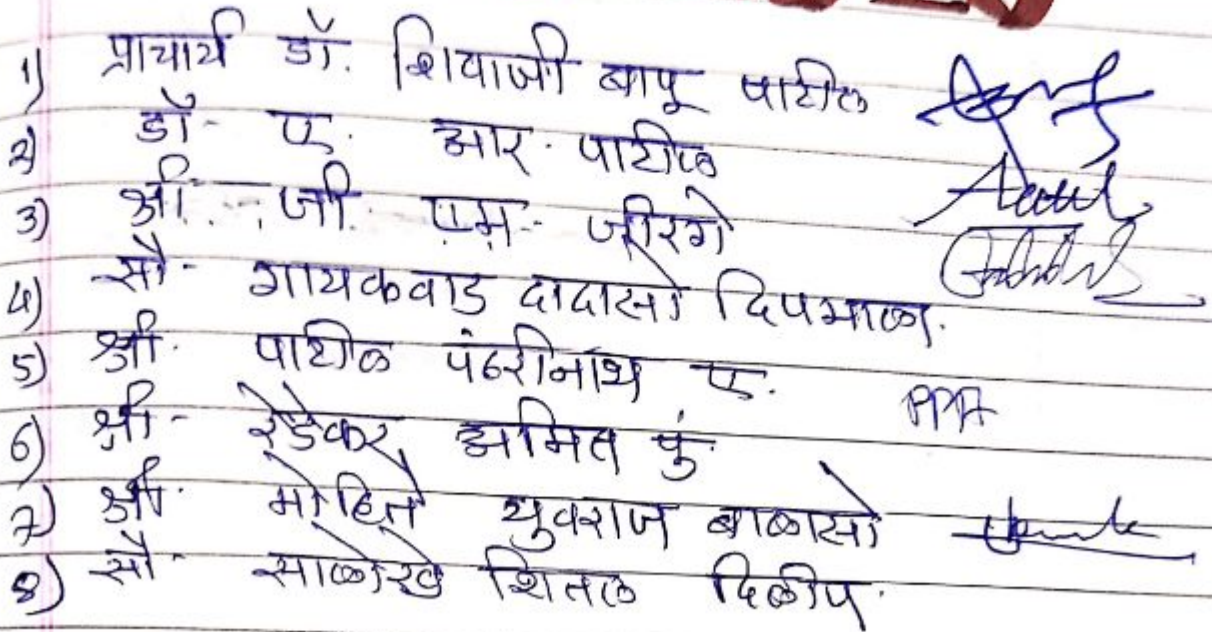 1) प्राचार्य डॉ. शिवाजी बापू पाटील
2) डॉ- ए. आर. पाटील
3) श्री. जी. एम. जीरगे
4) सौ- गायकवाड दादासो दिपमाळा.
5) श्री. पाटील पंढरीनाथ ए. PPA
6) श्री- रेडेकर अमित कुं.
7) श्री. मोहिते युवराज बाळासो
8) सौ- साळोखे शितल दिलीप.